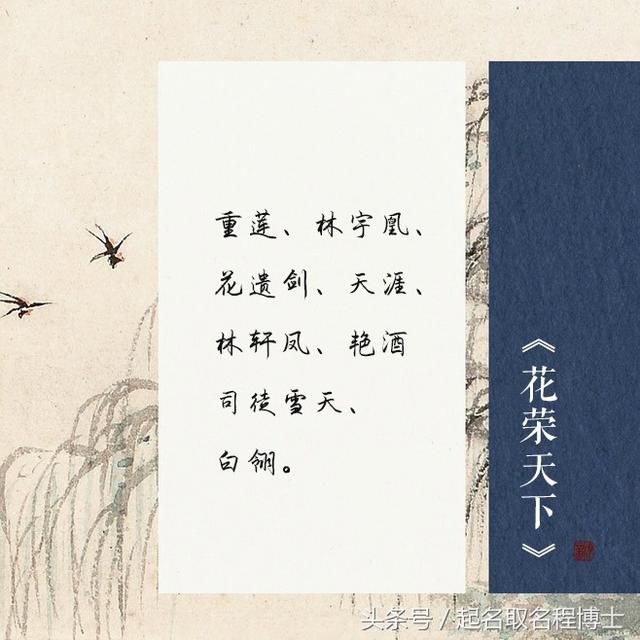 重莲、林宇凰、
花遗剑、天涯、
林轩凤、艳酒
司徒雪天、
白翎。
《花荣天下》
头条号/起名取名程博士